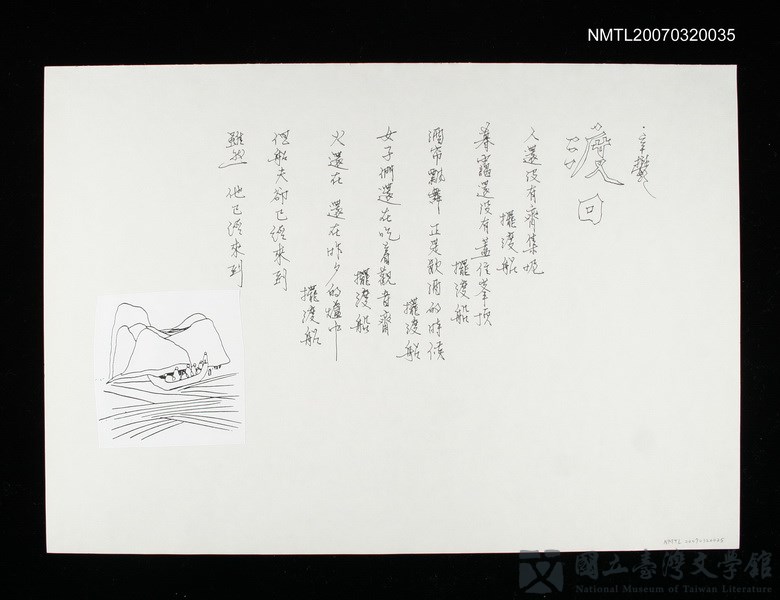 NMTL20070320035
辛鬱
渡口
人還沒有齊集呢
擺渡船
暮靄還沒有蓋住峯頂
擺渡船
酒帘飄舞 正是飲酒的時候
擺渡船
女子們還在吃着觀音齋
擺渡船
火還在 還在昨夕的爐中
擺渡船
但船夫卻已經來到
雖然 他已經來到
NMTL 20070320035
國立臺灣文學館
National Museum of Taiwan Literature